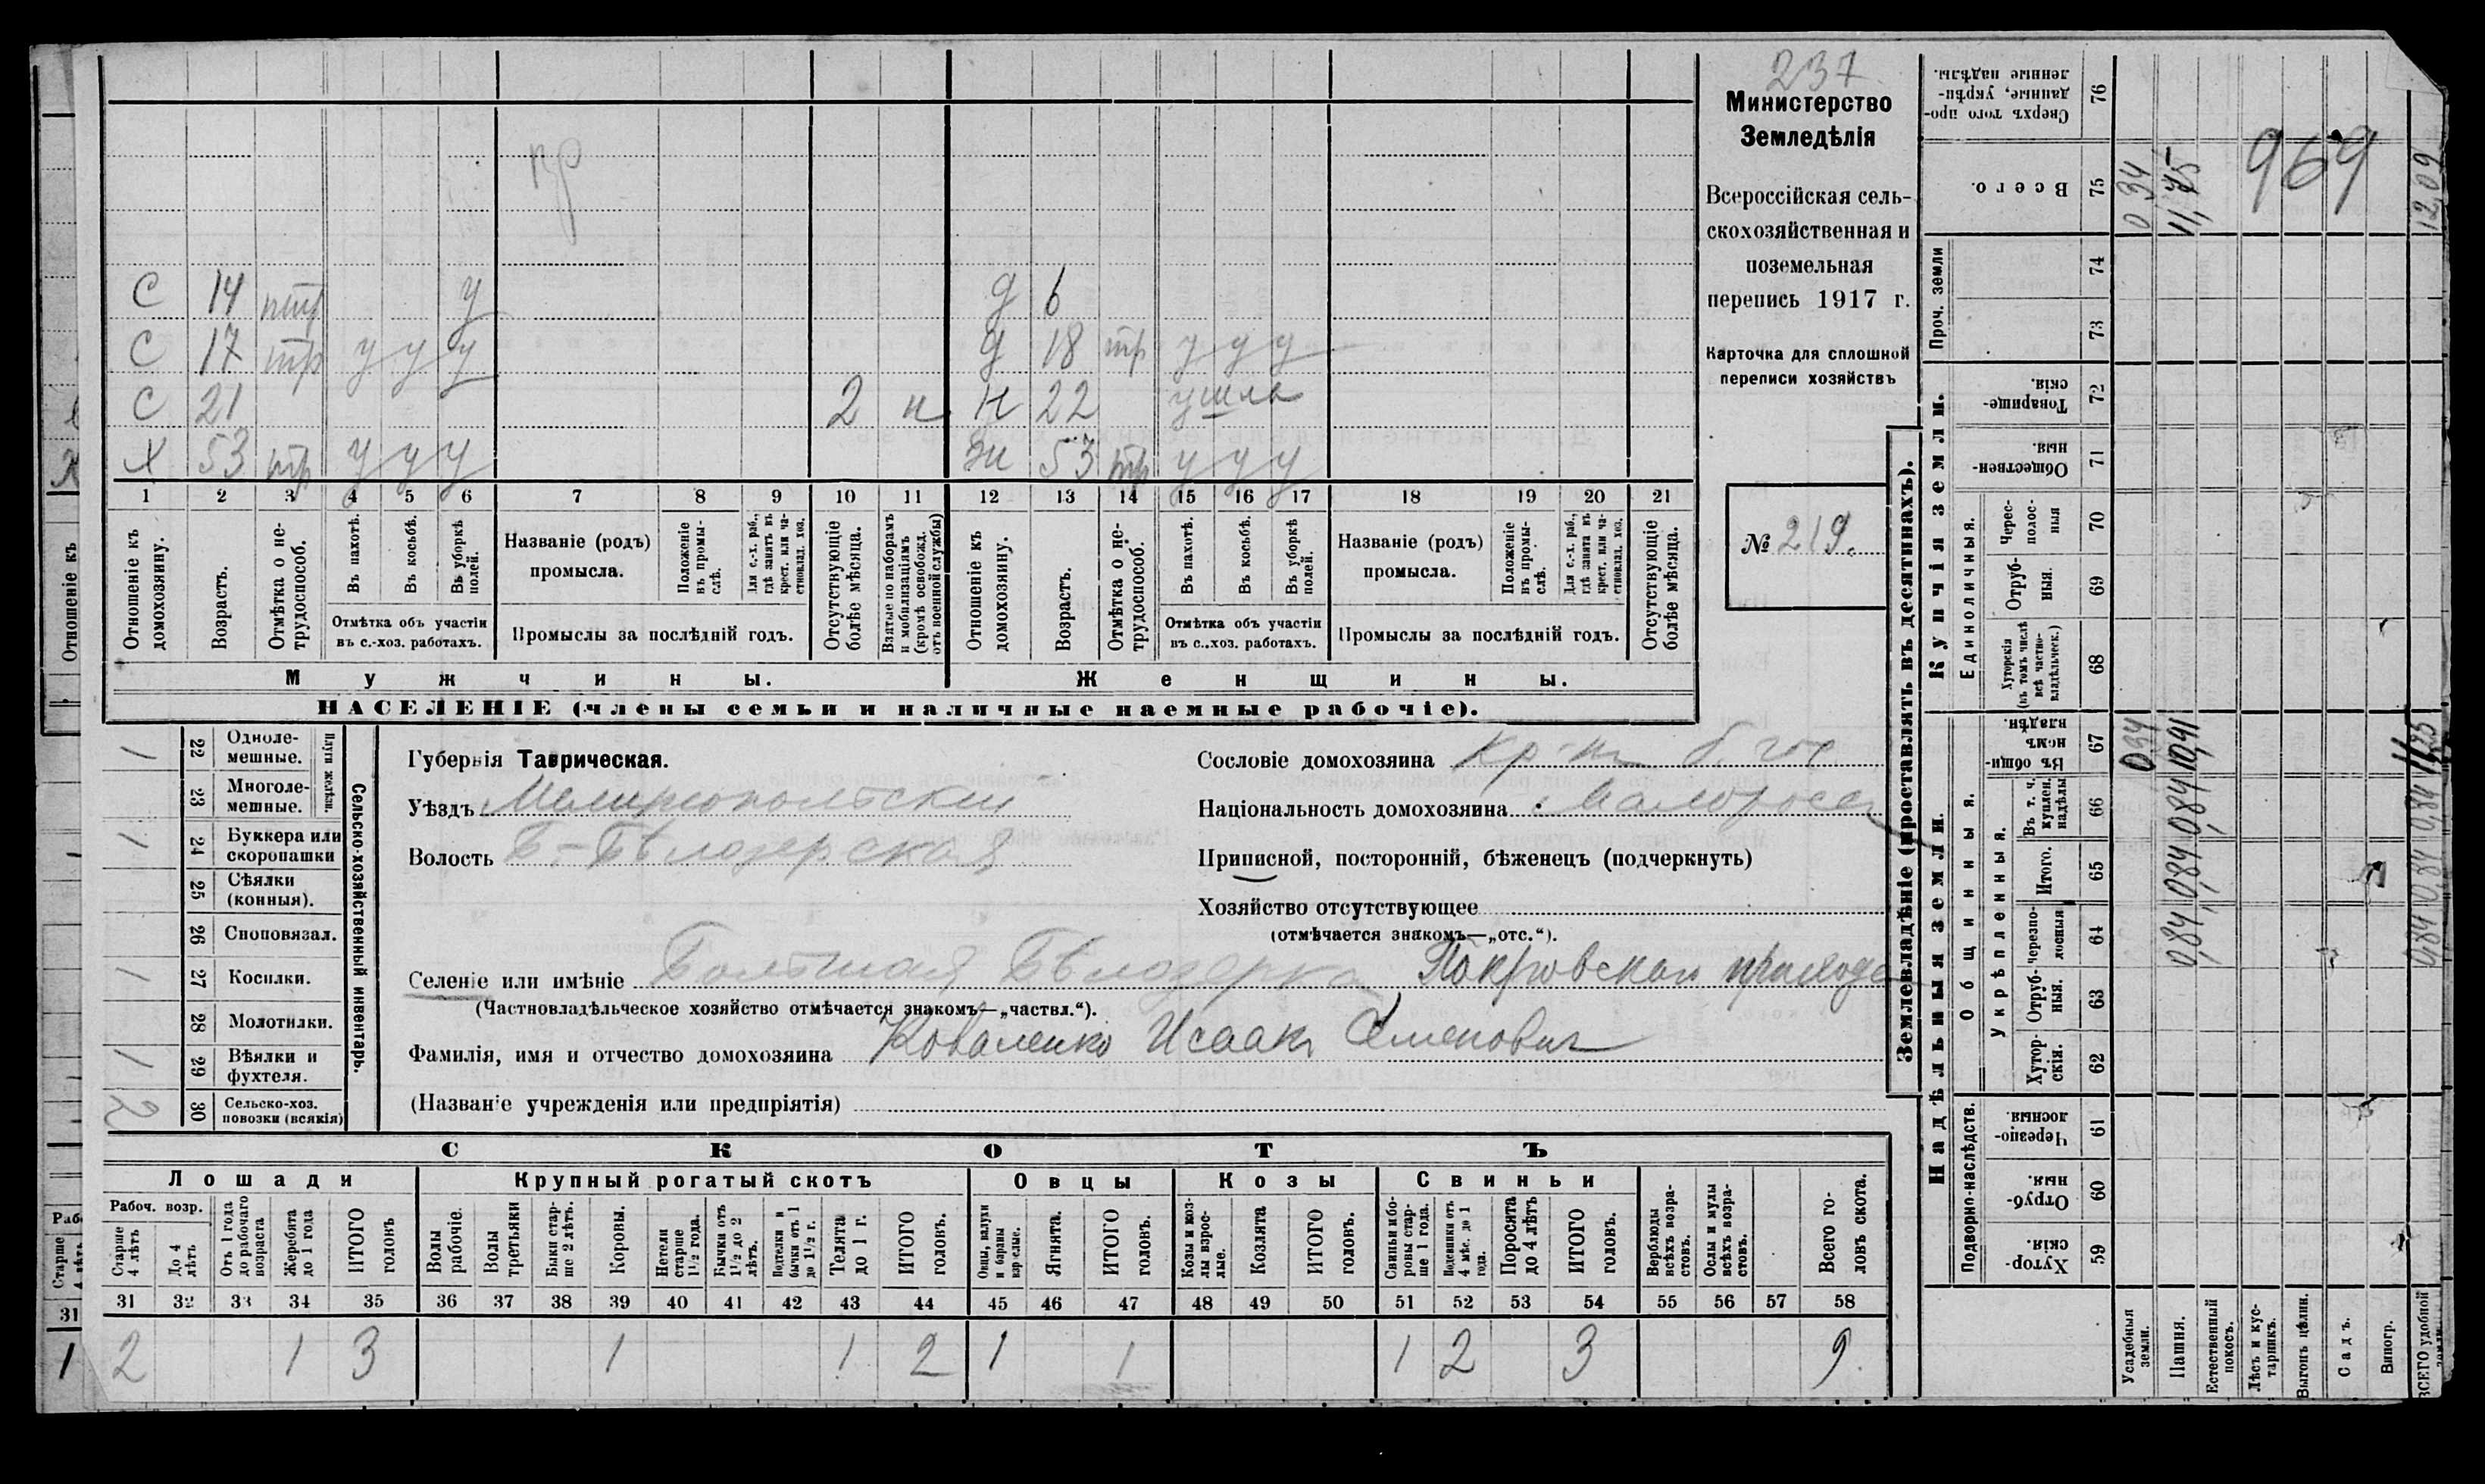 237
Министерство
Земледѣлія
Всероссійская сель-
скохозяйственная и
поземельная
перепись 1917 г.
Карточка для сплошной
переписи хозяйствъ
№ 219.
С 14 птр у д 6
С 17 тр у у у д 18 тр у у у
С 21 2 н 22 ушла
Х 53 тр у у у ж 53 тр у у у
1 2 3 4 5 6 7 8 9 10 11 12 13 14 15 16 17 18 19 20 21
Отношеніе къ домохозяину.
Возрастъ.
Отмѣтка о не-трудоспособ.
Въ пахотѣ.
Въ косьбѣ.
Въ уборкѣ полей.
Отмѣтка объ участіи
въ с.-хоз. работахъ.
Названіе (родъ)
промысла.
Положеніе въ промы-слѣ.
Для с.-х. раб., гдѣ занятъ въ крест. или ча-стновлад. хоз.
Промыслы за послѣдній годъ.
Отсутствующіе болѣе мѣсяца.
Взятые по наборамъ и мобилизаціямъ (кромѣ освобожд. отъ военной службы)
Отношеніе къ домохозяину.
Возрастъ.
Отмѣтка о не-трудоспособ.
Въ пахотѣ.
Въ косьбѣ.
Въ уборкѣ полей.
Отмѣтка объ участіи
въ с.-хоз. работахъ.
Названіе (родъ)
промысла.
Положеніе въ промы-слѣ.
Для с.-х. раб., гдѣ занята въ крест. или ча-стновлад. хоз.
Промыслы за послѣдній годъ.
Отсутствующіе болѣе мѣсяца.
Мужчины. Женщины.
НАСЕЛЕНІЕ (члены семьи и наличные наемные рабочіе).
Сельско-хозяйственный инвентарь.
Плуги желѣзн.
1 22 Одноле-мешные.
23 Многоле-мешные.
1 24 Буккера или скоропашки
25 Сѣялки (конныя).
26 Сноповязал.
1 27 Косилки.
28 Молотилки.
1 29 Вѣялки и фухтеля.
2 30 Сельско-хоз. повозки (всякія)
Губернія Таврическая.
Уѣздъ Мелитопольскій
Волость Б-Бѣлозерская
Сословіе домохозяина кр-н б. гос.
Національность домохозяина Малоросс
Приписной, посторонній, бѣженецъ (подчеркнуть)
Хозяйство отсутствующее
(отмѣчается знакомъ—„отс.“).
Селеніе или имѣніе Большая Бѣлозерка Покровскаго прихода
(Частновладѣльческое хозяйство отмѣчается знакомъ—„частвл.“).
Фамилія, имя и отчество домохозяина Коваленко Исаакъ Семенович
(Названіе учрежденія или предпріятія)
СКОТЪ
Лошади Крупный рогатый скотъ Овцы Козы Свиньи
Рабоч. возр.
Старше 4 лѣтъ
До 4 лѣтъ
Отъ 1 года до рабочаго возраста
Жеребята до 1 года
ИТОГО головъ
Волы рабочіе.
Волы третьяки
Быки стар-ше 2 лѣтъ.
Коровы.
Нетели старше 1½ года.
Бычки отъ 1½ до 2 лѣтъ.
Подтелки и бычки отъ 1 до 1½ г.
Телята до 1 г.
ИТОГО головъ.
Овцы, валухи и бараны взрослые.
Ягнята.
ИТОГО головъ.
Козы и коз-лы взрос-лые.
Козлята
ИТОГО головъ.
Свиньи и бо-ровы стар-ше 1 года.
Подсвинки отъ 4 мѣс. до 1 года.
Поросята до 4 лѣтъ
ИТОГО головъ.
Верблюды всѣхъ возра-стовъ.
Ослы и мулы всѣхъ возра-стовъ.
Всего го-ловъ скота.
31 32 33 34 35 36 37 38 39 40 41 42 43 44 45 46 47 48 49 50 51 52 53 54 55 56 57 58
2 1 3 1 1 2 1 1 1 2 3 9
Землевладѣніе (проставлять въ десятинахъ).
Купчія земли.
Надѣльныя земли.
Проч. земли
Единоличныя.
Общинныя.
Укрѣпленныя.
Подворно-наслѣдств.
Сверхъ того про-данные, укрѣп-ленные надѣлы. 76
Всего. 75
74
73
Товарище-скія. 72
Обществен-ныя. 71
Черес-полос-ныя 70
Отруб-ныя. 69
Хуторскія (въ томъ числѣ всѣ частно-владѣльческ.) 68
Въ общи-номъ владѣн. 67
Въ т. ч. куплен. надѣлы 66
Итого. 65
Черезпо-лосныя 64
Отруб-ныя. 63
Хутор-скія. 62
Черезпо-лосныя 61
Отруб-ныя. 60
Хутор-скія. 59
Усадебныя земли. 0,34 0,34
Пашня. 0,84 0,84 0,84 10,91 11,75
Естественный покосъ.
Лѣсъ и кус-тарникъ.
Выгонъ цѣлин.
Садъ.
Виногр.
ВСЕГО удобной земли 0,84 0,84 0,84 11,25 12,09
969
Отношеніе къ
Старше
31
1